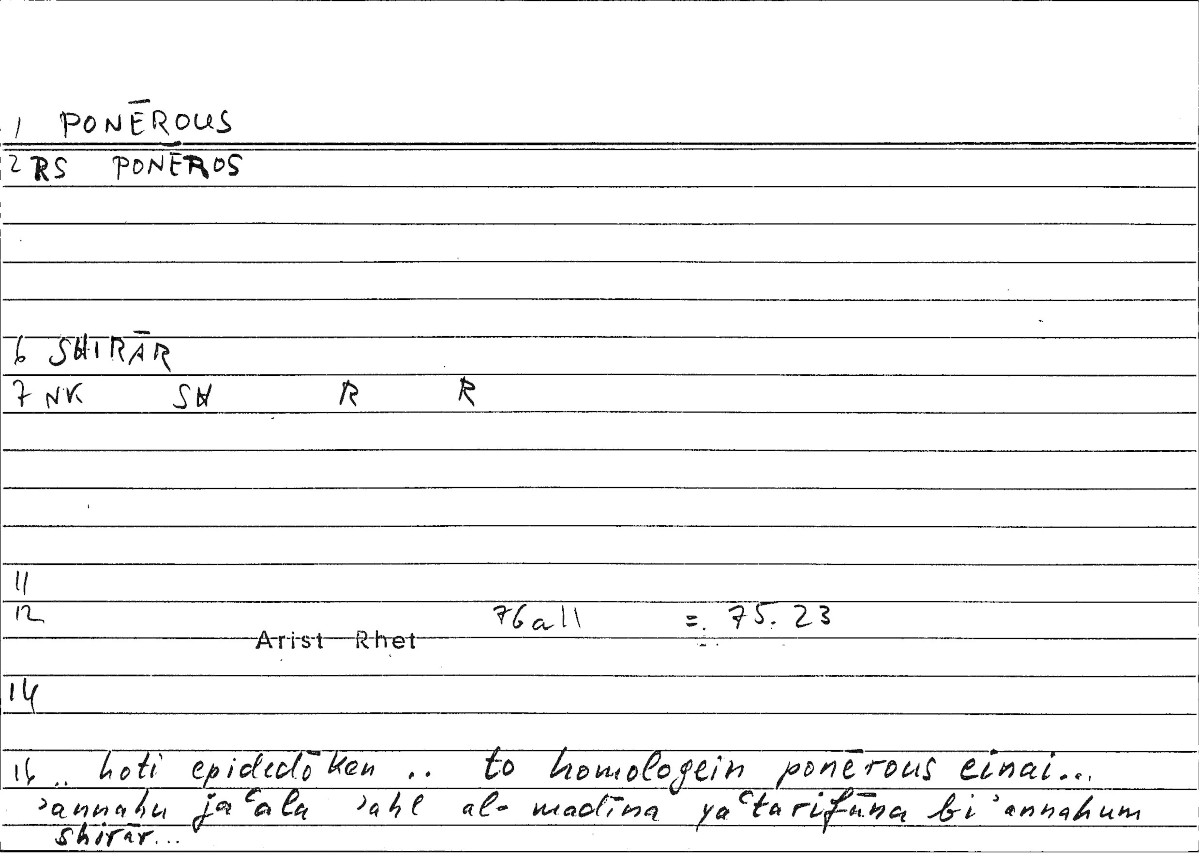 1 PONĒROUS
2 RS PONĒROS
6 SHIRĀR
7 NK SH R R
11
12 76a11 =. 75.23
Arist Rhet
14
16 .. hoti epidedōken .. to homologein ponērous einai...
ʾannahu jaʿala ʾahl al-madīna yaʿtarifūna biʾannahum
shirār...